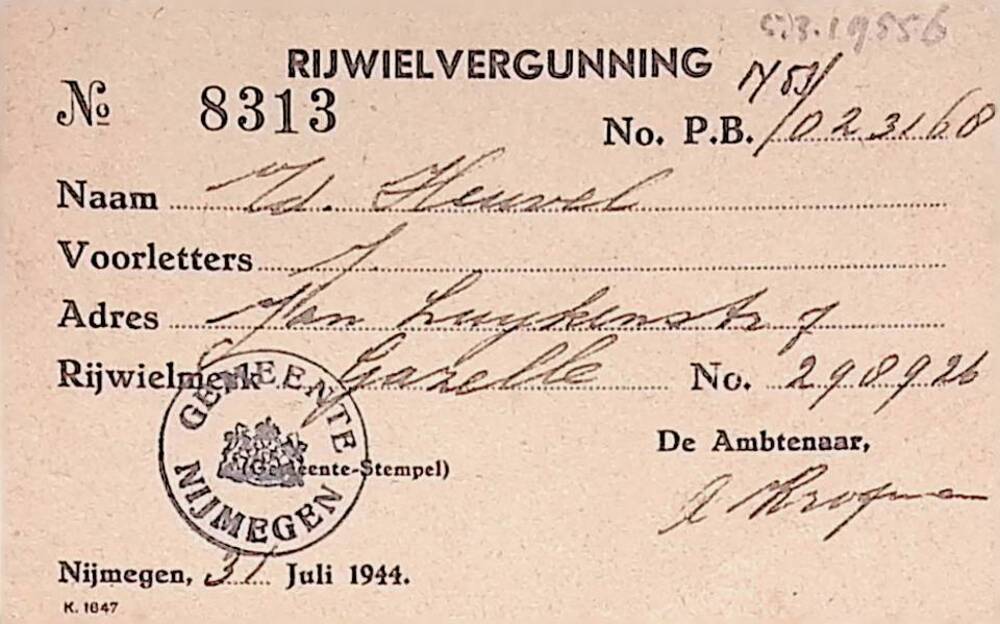 RIJWIELVERGUNNING
No 8313
No. P.B. / 023168
Naam v. d. Heuvel
Voorletters J.
Adres Jan Luykenstr 7
Rijwielmerk Gazelle No. 298926
GEMEENTE NIJMEGEN
(Gemeente-Stempel)
De Ambtenaar,
Nijmegen, 31 Juli 1944.
K. 1647